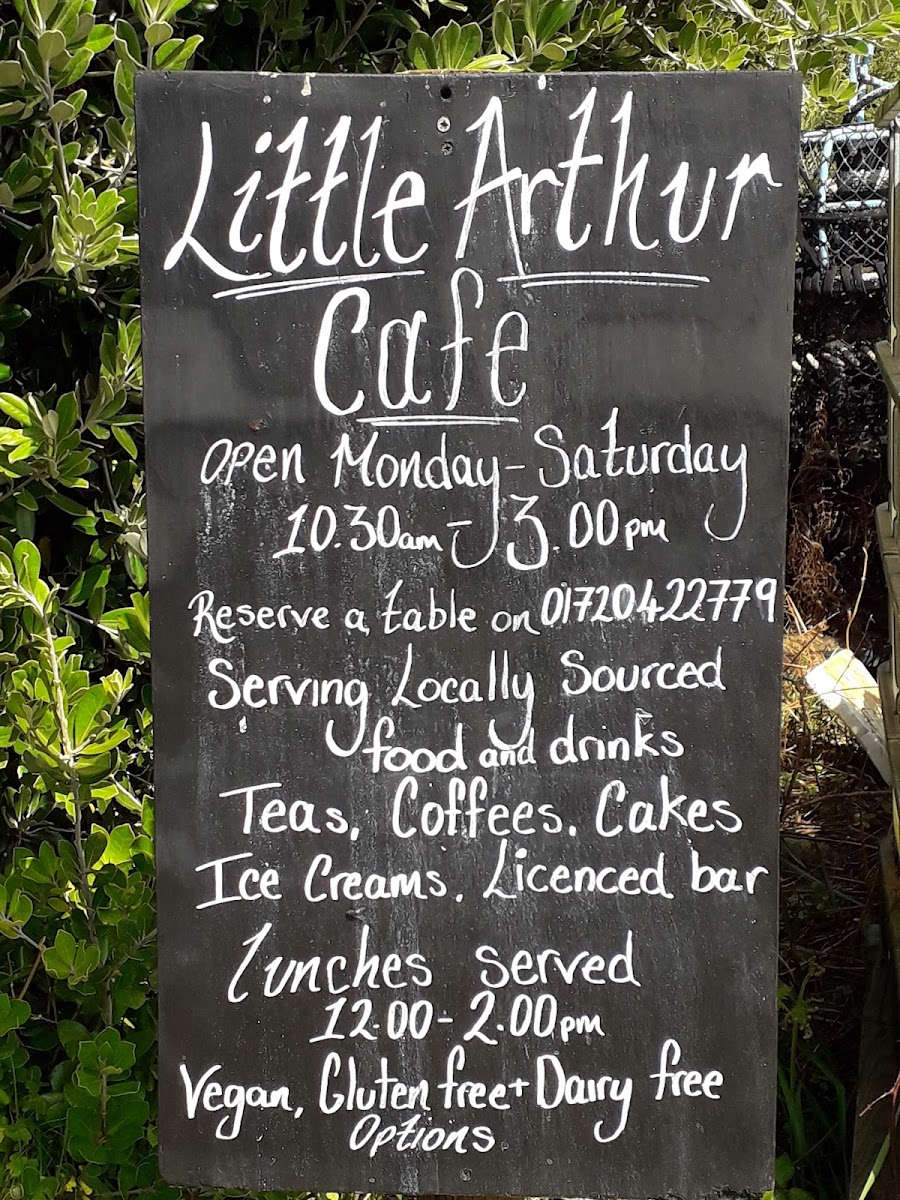 Little Arthur
Cafe
Open Monday-Saturday
10.30am-3.00pm
Reserve a table on 01720422779
Serving Locally Sourced
food and drinks
Teas. Coffees. Cakes
Ice Creams. Licenced bar
lunches served
12.00-2.00pm
Vegan, Gluten free + Dairy free
Options